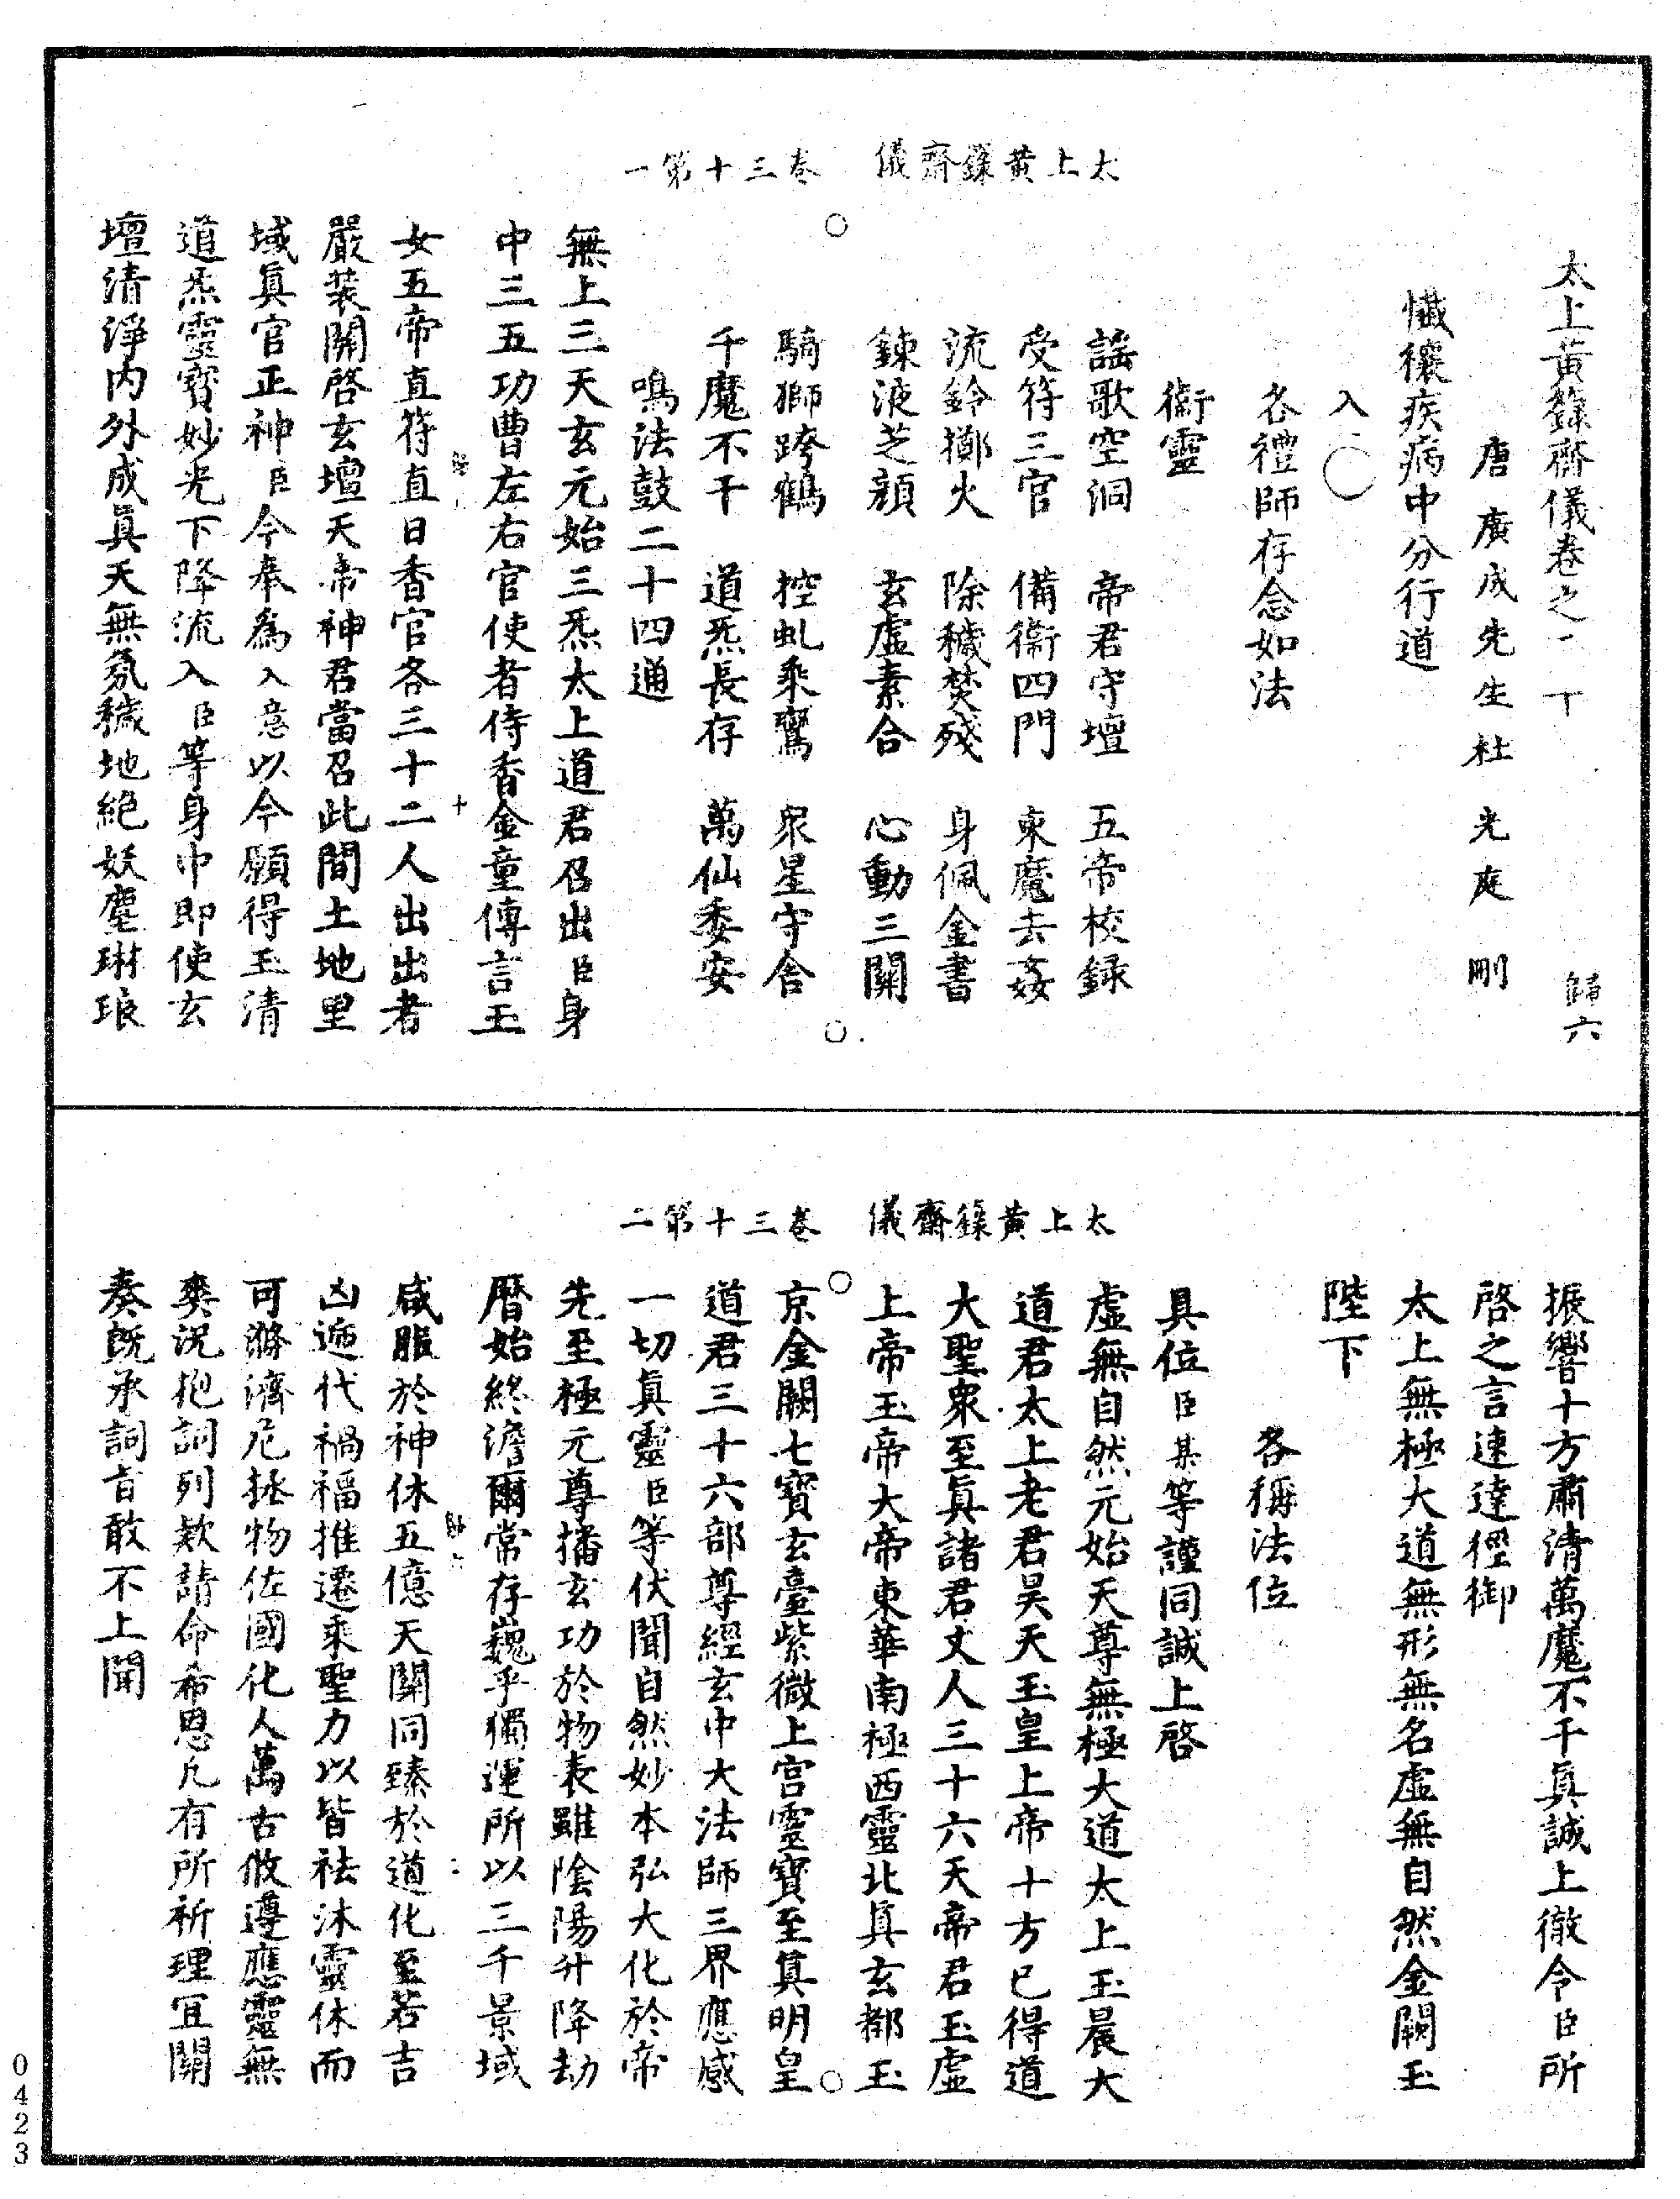 太上黃籙齋儀 卷三十第一
太上黃籙齋儀卷之三十 歸六
唐廣成先生杜光庭刪
懺禳疾病中分行道
入○
各禮師存念如法
衞靈
謡歌空洞 帝君守壇 五帝校錄
受符三官 備衞四門 束魔去姦
流鈴擲火 除穢焚殘 身佩金書
鍊液芝顔 玄虛素合 心動三關
騎獅跨鶴 控虬乘鸞 衆星守舍
千魔不干 道炁長存 萬仙委安
鳴法鼓二十四通
無上三天玄元始三炁太上道君召出臣身
中三五功曹左右官使者侍香金童傳言玉
女五帝直符直日香官各三十二人出出者
嚴裝關啓玄壇天帝神君當召此間土地里
域真官正神臣今奉爲入意以今願得玉清
道炁靈寶妙光下降流入臣等身中即使玄
壇清淨内外成真天無氛穢地絶妖塵琳琅
太上黃籙齋儀 卷三十第二
振響十方肅清萬魔不干真誠上徹令臣所
啓之言速達徑御
太上無極大道無形無名虛無自然金闕玉
陛下
各稱法位
具位臣某等謹同誠上啓
虛無自然元始天尊無極大道太上玉晨大
道君太上老君昊天玉皇上帝十方已得道
大聖衆至真諸君丈人三十六天帝君玉虛
上帝玉帝大帝東華南極西靈北真玄都玉
京金闕七寶玄臺紫微上宫靈寶至真明皇
道君三十六部尊經玄中大法師三界應感
一切真靈臣等伏聞自然妙本弘大化於帝
先至極元尊播玄功於物表雖陰陽升降劫
曆始終澹爾常存巍乎獨運所以三千景域
咸服於神休五億天關同臻於道化至若吉
凶遞代禍福推遷乘聖力以皆祛沐靈休而
可滌濟危拯物佐國化人萬古攸遵應靈無
爽況抱詞列款請命希恩凡有所祈理宜關
奏既承詞旨敢不上聞
0423